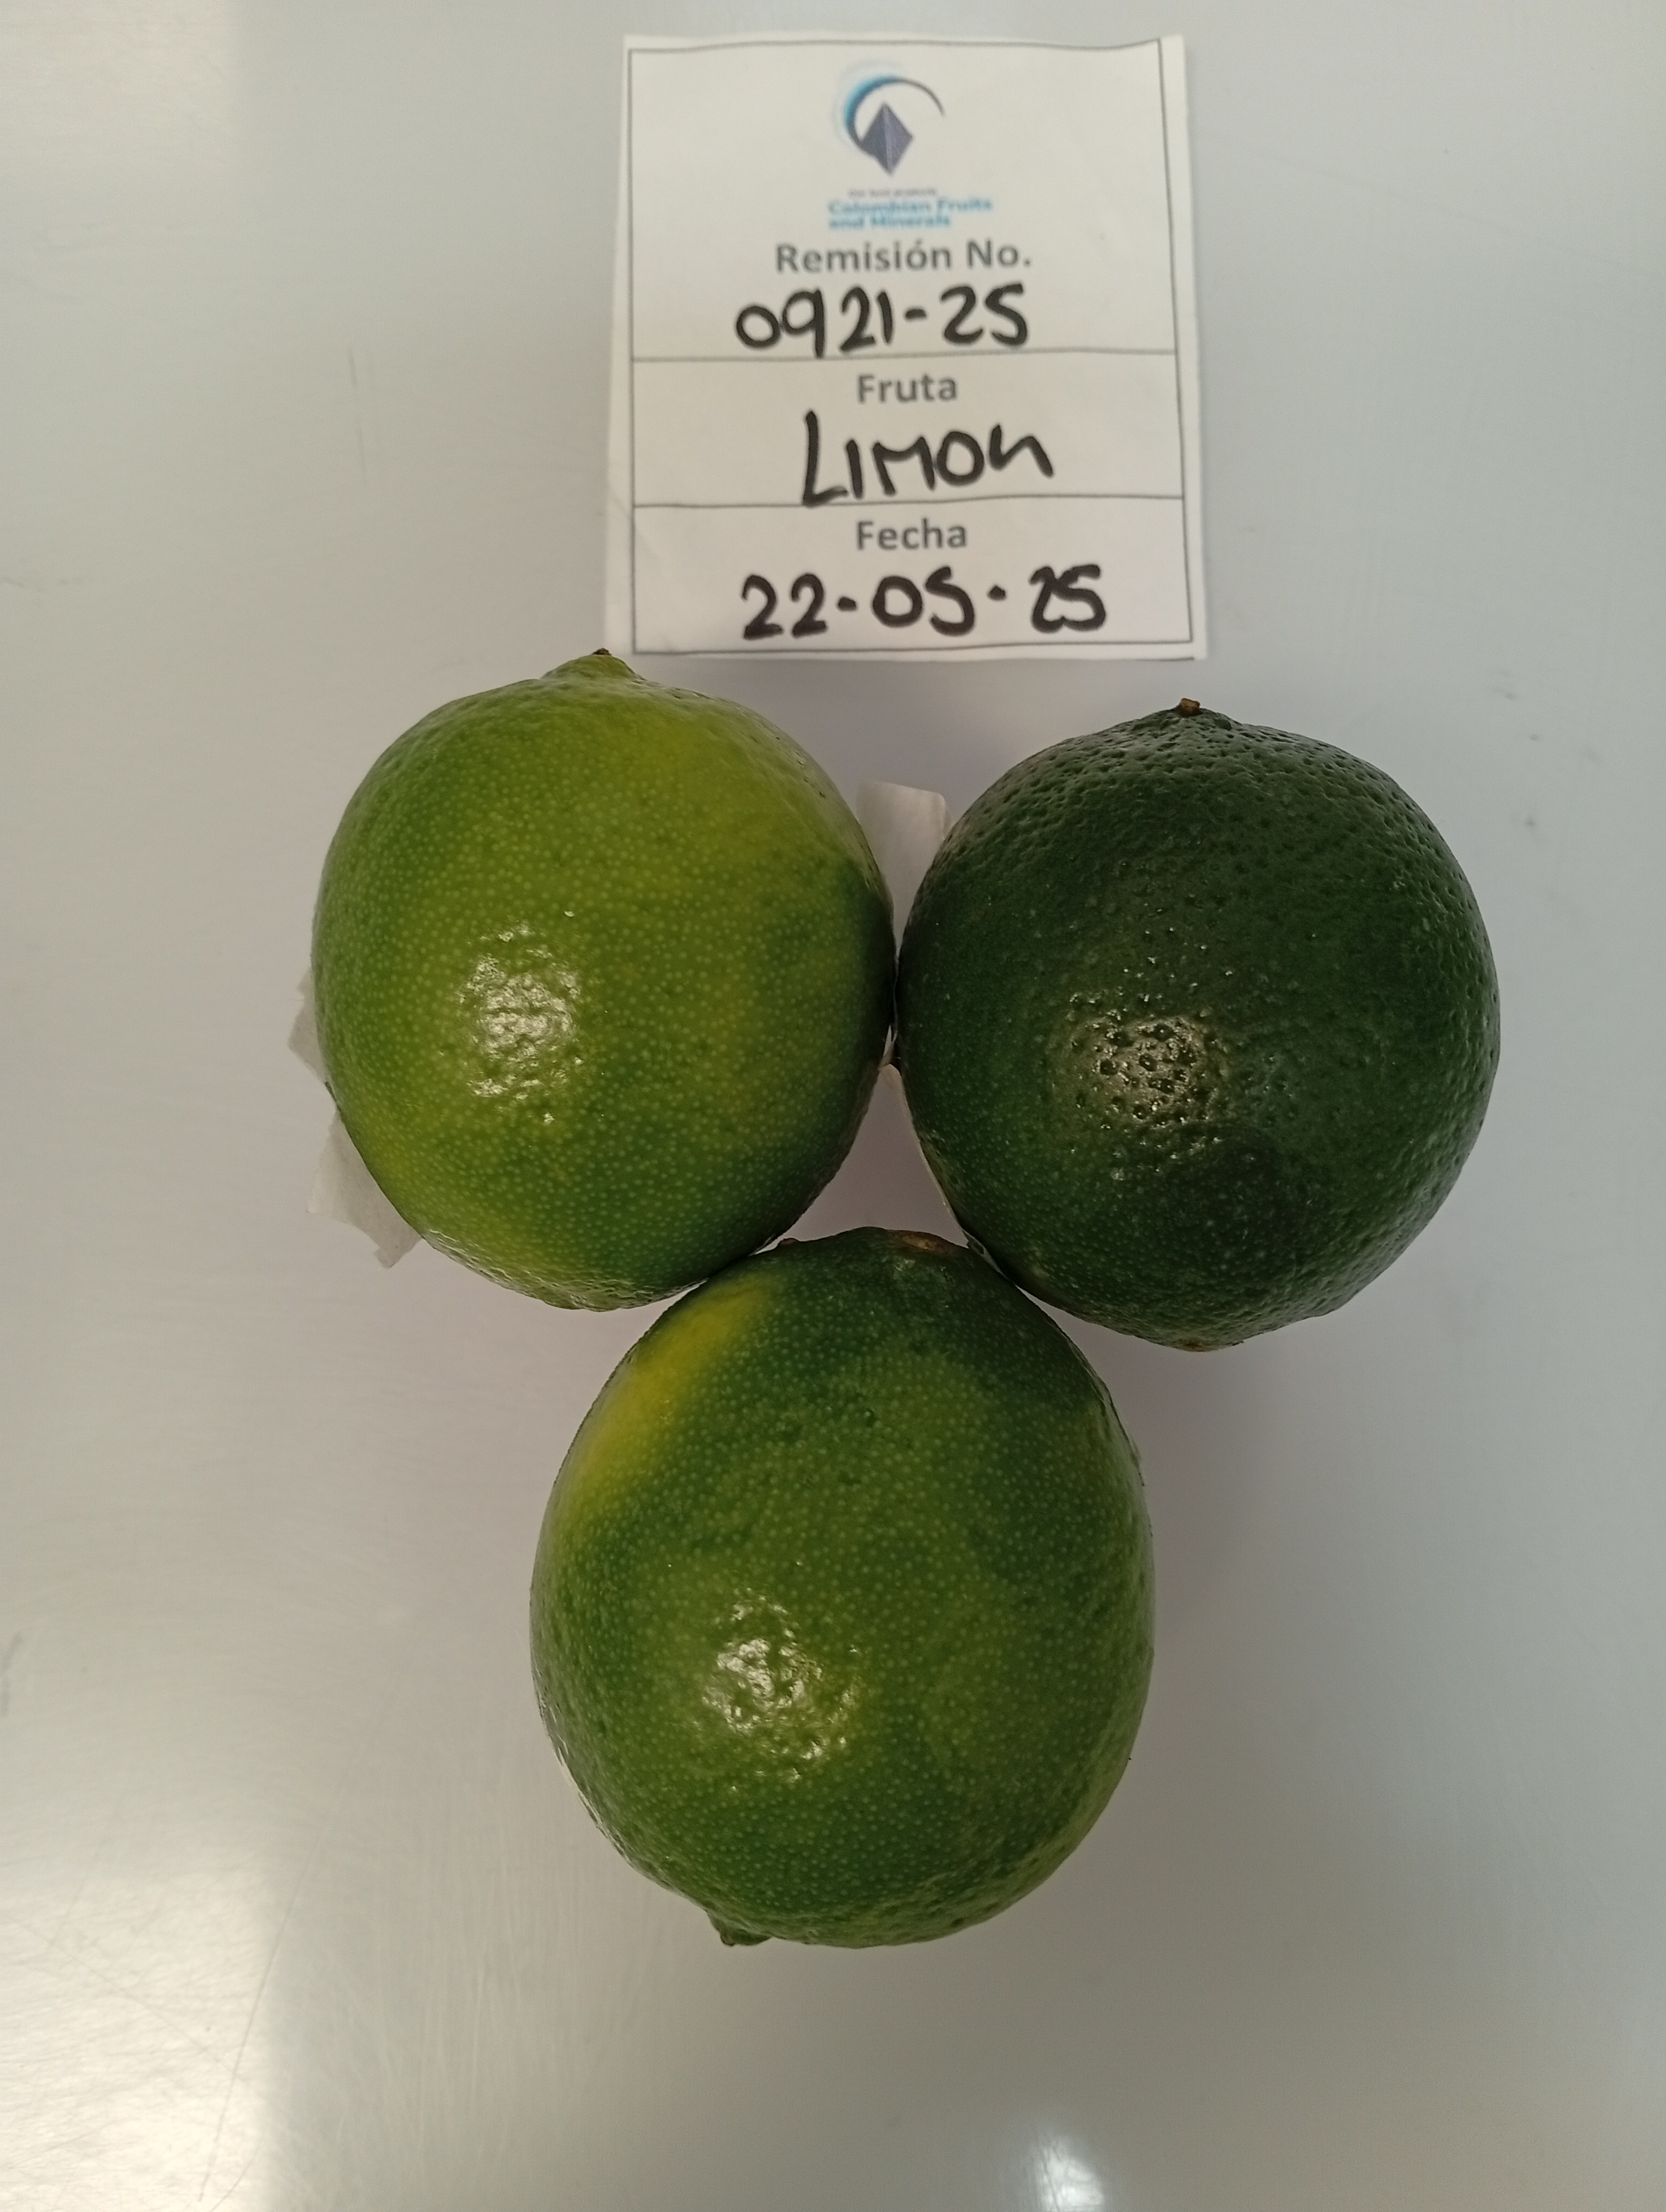 Colombian Fruits
and Minerals
Remisión No.
0921-25
Fruta
LIMON
Fecha
22-05-25